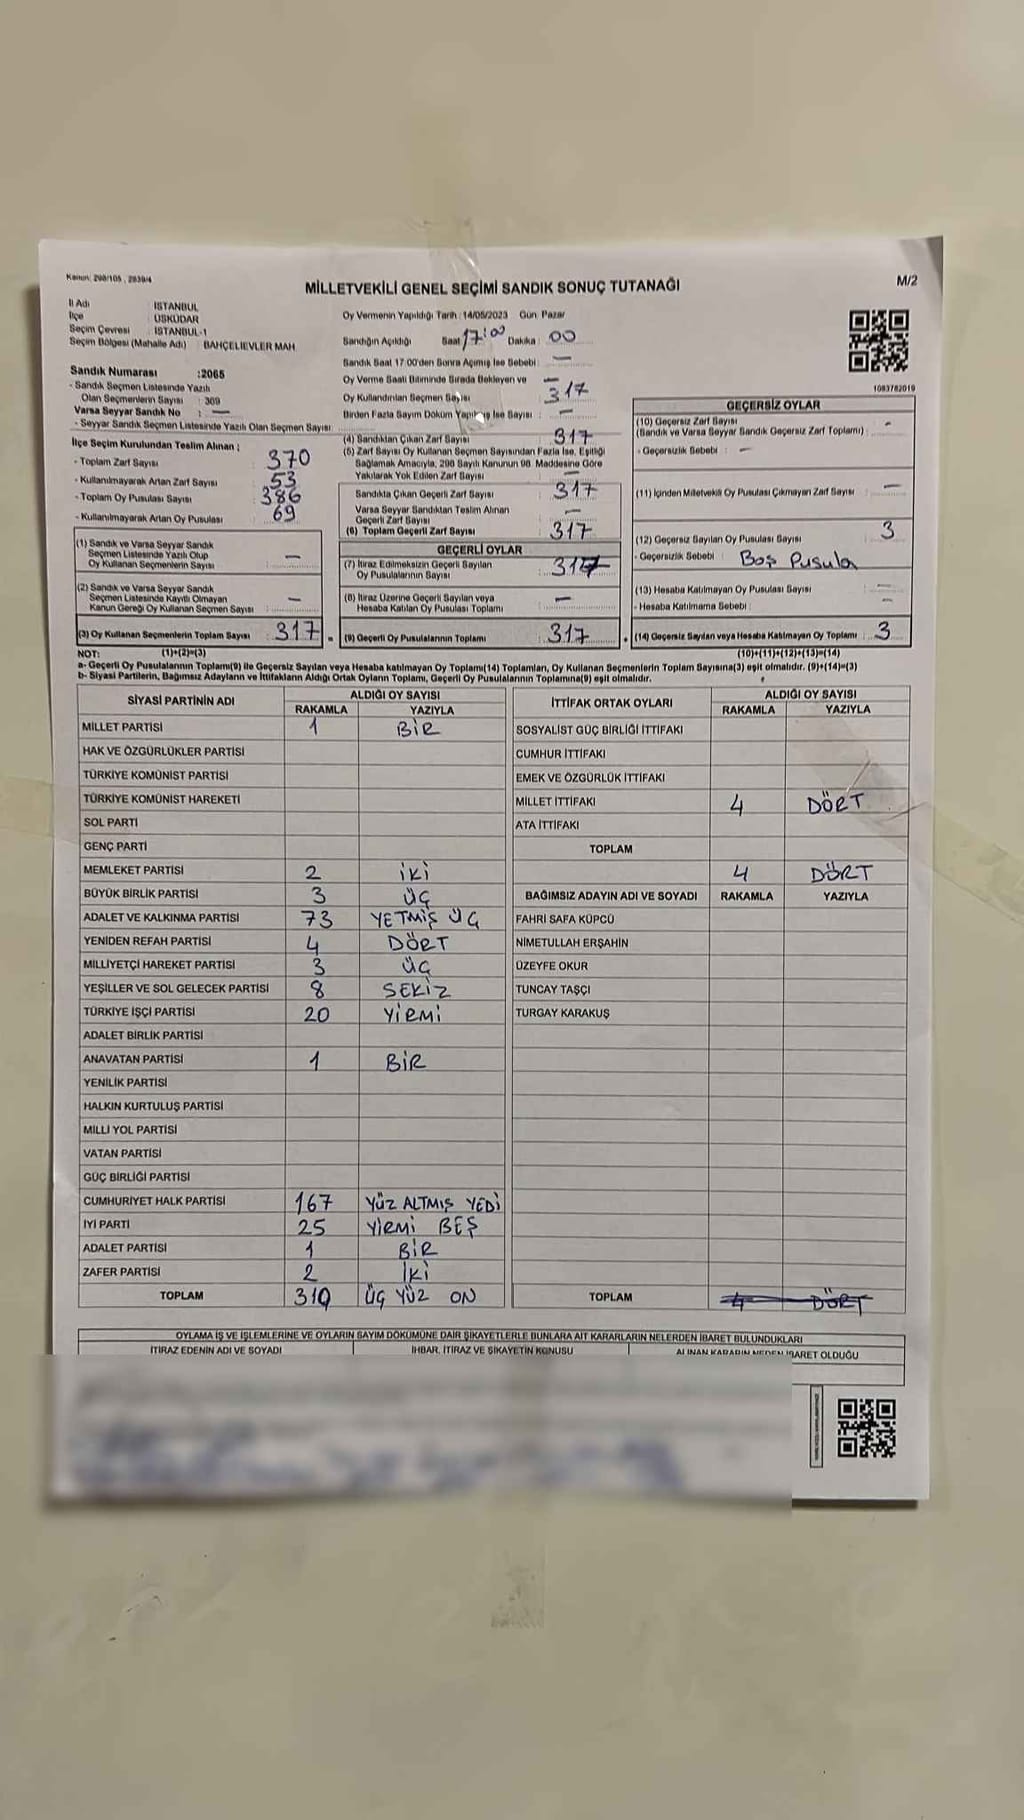 Kanun: 298/105 , 2839/4
M/2
MİLLETVEKİLİ GENEL SEÇİMİ SANDIK SONUÇ TUTANAĞI
İl Adı İSTANBUL
İlçe ÜSKÜDAR
Seçim Çevresi İSTANBUL-1
Seçim Bölgesi (Mahalle Adı) BAHÇELİEVLER MAH.
Sandık Numarası :2065
- Sandık Seçmen Listesinde Yazılı
Olan Seçmenlerin Sayısı : 369
Varsa Seyyar Sandık No : —
- Seyyar Sandık Seçmen Listesinde Yazılı Olan Seçmen Sayısı:
İlçe Seçim Kurulundan Teslim Alınan ;
- Toplam Zarf Sayısı 370
- Kullanılmayarak Artan Zarf Sayısı 53
- Toplam Oy Pusulası Sayısı 386
- Kullanılmayarak Artan Oy Pusulası 69
(1) Sandık ve Varsa Seyyar Sandık
Seçmen Listesinde Yazılı Olup
Oy Kullanan Seçmenlerin Sayısı : —
(2) Sandık ve Varsa Seyyar Sandık
Seçmen Listesinde Kayıtlı Olmayan
Kanun Gereği Oy Kullanan Seçmen Sayısı : —
(3) Oy Kullanan Seçmenlerin Toplam Sayısı : 317 =
Oy Vermenin Yapıldığı Tarih : 14/05/2023 Gün: Pazar
Sandığın Açıldığı Saat 17:00 Dakika : 00
Sandık Saat 17:00'den Sonra Açılmış İse Sebebi : —
Oy Verme Saati Bitiminde Sırada Bekleyen ve —
Oy Kullandırılan Seçmen Sayısı : 317
Birden Fazla Sayım Döküm Yapılmış İse Sayısı : —
(4) Sandıktan Çıkan Zarf Sayısı 317
(5) Zarf Sayısı Oy Kullanan Seçmen Sayısından Fazla İse, Eşitliği
Sağlamak Amacıyla, 298 Sayılı Kanunun 98. Maddesine Göre
Yakılarak Yok Edilen Zarf Sayısı —
Sandıkta Çıkan Geçerli Zarf Sayısı : 317
Varsa Seyyar Sandıktan Teslim Alınan
Geçerli Zarf Sayısı —
(6) Toplam Geçerli Zarf Sayısı : 317
GEÇERLİ OYLAR
(7) İtiraz Edilmeksizin Geçerli Sayılan
Oy Pusulalarının Sayısı : 317
(8) İtiraz Üzerine Geçerli Sayılan veya
Hesaba Katılan Oy Pusulası Toplamı —
(9) Geçerli Oy Pusulalarının Toplamı 317 +
1083782019
GEÇERSİZ OYLAR
(10) Geçersiz Zarf Sayısı
(Sandık ve Varsa Seyyar Sandık Geçersiz Zarf Toplamı) : -
- Geçersizlik Sebebi : —
(11) İçinden Milletvekili Oy Pusulası Çıkmayan Zarf Sayısı —
(12) Geçersiz Sayılan Oy Pusulası Sayısı 3
- Geçersizlik Sebebi : Boş Pusula
(13) Hesaba Katılmayan Oy Pusulası Sayısı —
- Hesaba Katılmama Sebebi : —
(14) Geçersiz Sayılan veya Hesaba Katılmayan Oy Toplamı : 3
NOT: (1)+(2)=(3) (10)+(11)+(12)+(13)=(14)
a- Geçerli Oy Pusulalarının Toplamı(9) ile Geçersiz Sayılan veya Hesaba katılmayan Oy Toplamı(14) Toplamları, Oy Kullanan Seçmenlerin Toplam Sayısına(3) eşit olmalıdır. (9)+(14)=(3)
b- Siyasi Partilerin, Bağımsız Adayların ve İttifakların Aldığı Oyların Toplamı, Geçerli Oy Pusulalarının Toplamına(9) eşit olmalıdır.
SİYASİ PARTİNİN ADI ALDIĞI OY SAYISI
RAKAMLA YAZIYLA
MİLLET PARTİSİ 1 BİR
HAK VE ÖZGÜRLÜKLER PARTİSİ
TÜRKİYE KOMÜNİST PARTİSİ
TÜRKİYE KOMÜNİST HAREKETİ
SOL PARTİ
GENÇ PARTİ
MEMLEKET PARTİSİ 2 İKİ
BÜYÜK BİRLİK PARTİSİ 3 ÜÇ
ADALET VE KALKINMA PARTİSİ 73 YETMİŞ ÜÇ
YENİDEN REFAH PARTİSİ 4 DÖRT
MİLLİYETÇİ HAREKET PARTİSİ 3 ÜÇ
YEŞİLLER VE SOL GELECEK PARTİSİ 8 SEKİZ
TÜRKİYE İŞÇİ PARTİSİ 20 YİRMİ
ADALET BİRLİK PARTİSİ
ANAVATAN PARTİSİ 1 BİR
YENİLİK PARTİSİ
HALKIN KURTULUŞ PARTİSİ
MİLLİ YOL PARTİSİ
VATAN PARTİSİ
GÜÇ BİRLİĞİ PARTİSİ
CUMHURİYET HALK PARTİSİ 167 YÜZ ALTMIŞ YEDİ
İYİ PARTİ 25 YİRMİ BEŞ
ADALET PARTİSİ 1 BİR
ZAFER PARTİSİ 2 İKİ
TOPLAM 310 ÜÇ YÜZ ON
İTTİFAK ORTAK OYLARI ALDIĞI OY SAYISI
RAKAMLA YAZIYLA
SOSYALİST GÜÇ BİRLİĞİ İTTİFAKI
CUMHUR İTTİFAKI
EMEK VE ÖZGÜRLÜK İTTİFAKI
MİLLET İTTİFAKI 4 DÖRT
ATA İTTİFAKI
TOPLAM 4 DÖRT
BAĞIMSIZ ADAYIN ADI VE SOYADI RAKAMLA YAZIYLA
FAHRİ SAFA KÜPCÜ
NİMETULLAH ERŞAHİN
ÜZEYFE OKUR
TUNCAY TAŞÇI
TURGAY KARAKUŞ
TOPLAM 4 DÖRT
OYLAMA İŞ VE İŞLEMLERİNE VE OYLARIN SAYIM DÖKÜMÜNE DAİR ŞİKAYETLERLE BUNLARA AİT KARARLARIN NELERDEN İBARET BULUNDUKLARI
İTİRAZ EDENİN ADI VE SOYADI İHBAR, İTİRAZ VE ŞİKAYETİN KONUSU ALINAN KARARIN NEDEN İBARET OLDUĞU